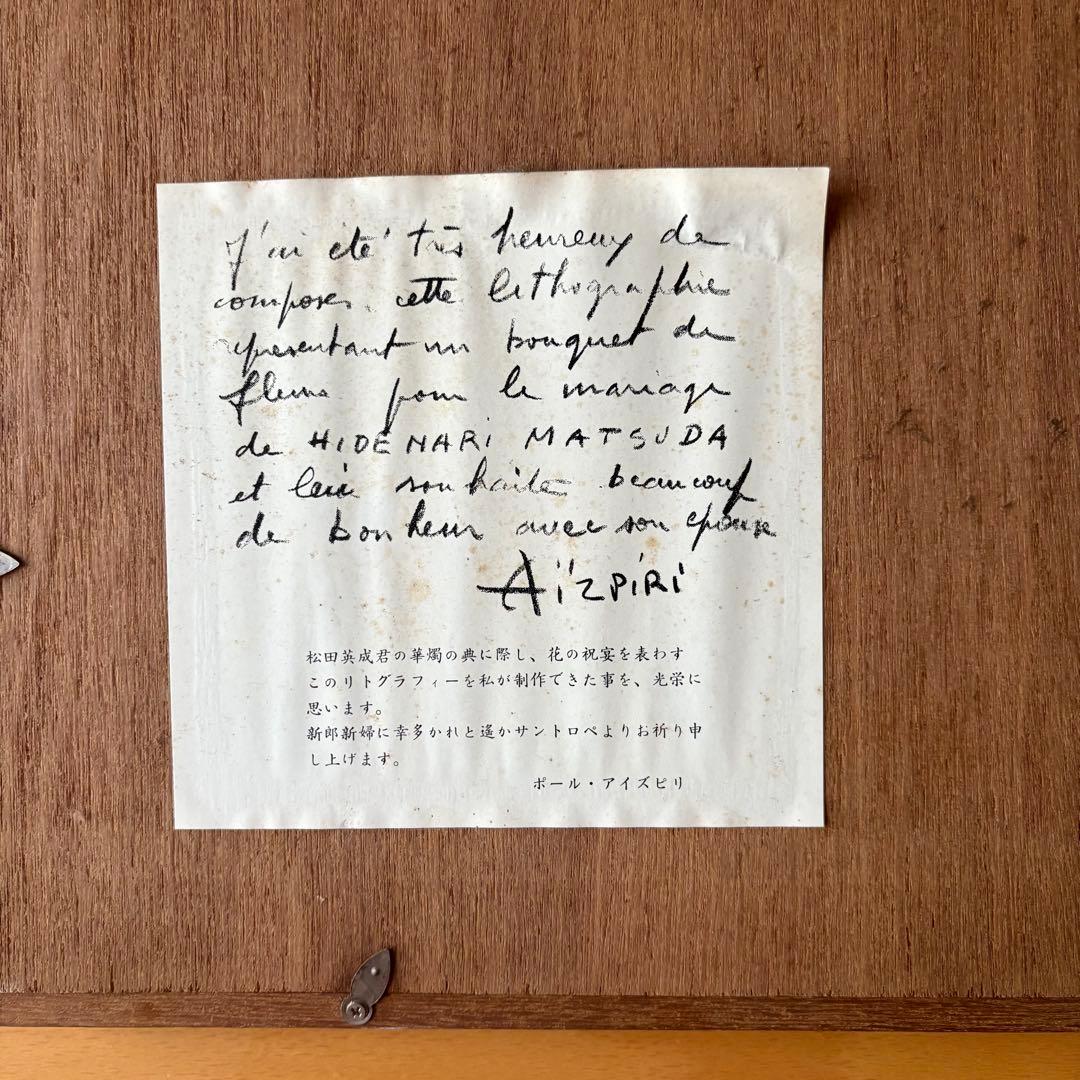 J'ai été très heureux de
composer cette lithographie
représentant un bouquet de
fleurs pour le mariage
de HIDENARI MATSUDA
et lui souhaite beaucoup
de bonheur avec son épouse
Aïzpiri
松田英成君の華燭の典に際し、花の祝宴を表わす
このリトグラフィーを私が制作できた事を、光栄に
思います。
新郎新婦に幸多かれと遙かサントロペよりお祈り申
し上げます。
ポール・アイズピリ